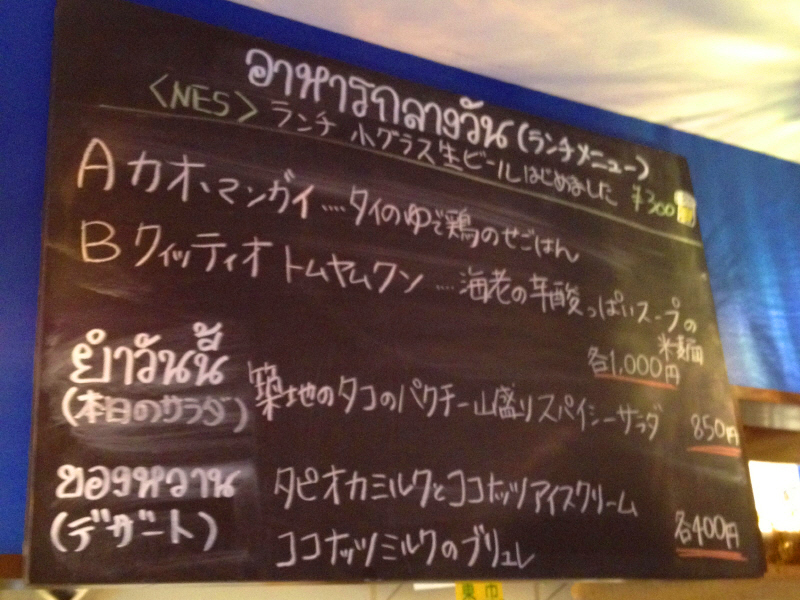 อาหารกลางวัน(ランチメニュー)
<NES> ランチ 小グラス生ビールはじめました ¥300
A カオ、マンガイ....タイのゆで鶏のせごはん
B クィッティオ トムヤムクン ....海老の辛酸っぱいスープの
米麺
各1,000円
ยำวันนี้
(本日のサラダ)
築地のタコのパクチー山盛りスパイシーサラダ 850円
ของหวาน
(デザート)
タピオカミルクとココナッツアイスクリーム
ココナッツミルクのブリュレ
各400円
東巾